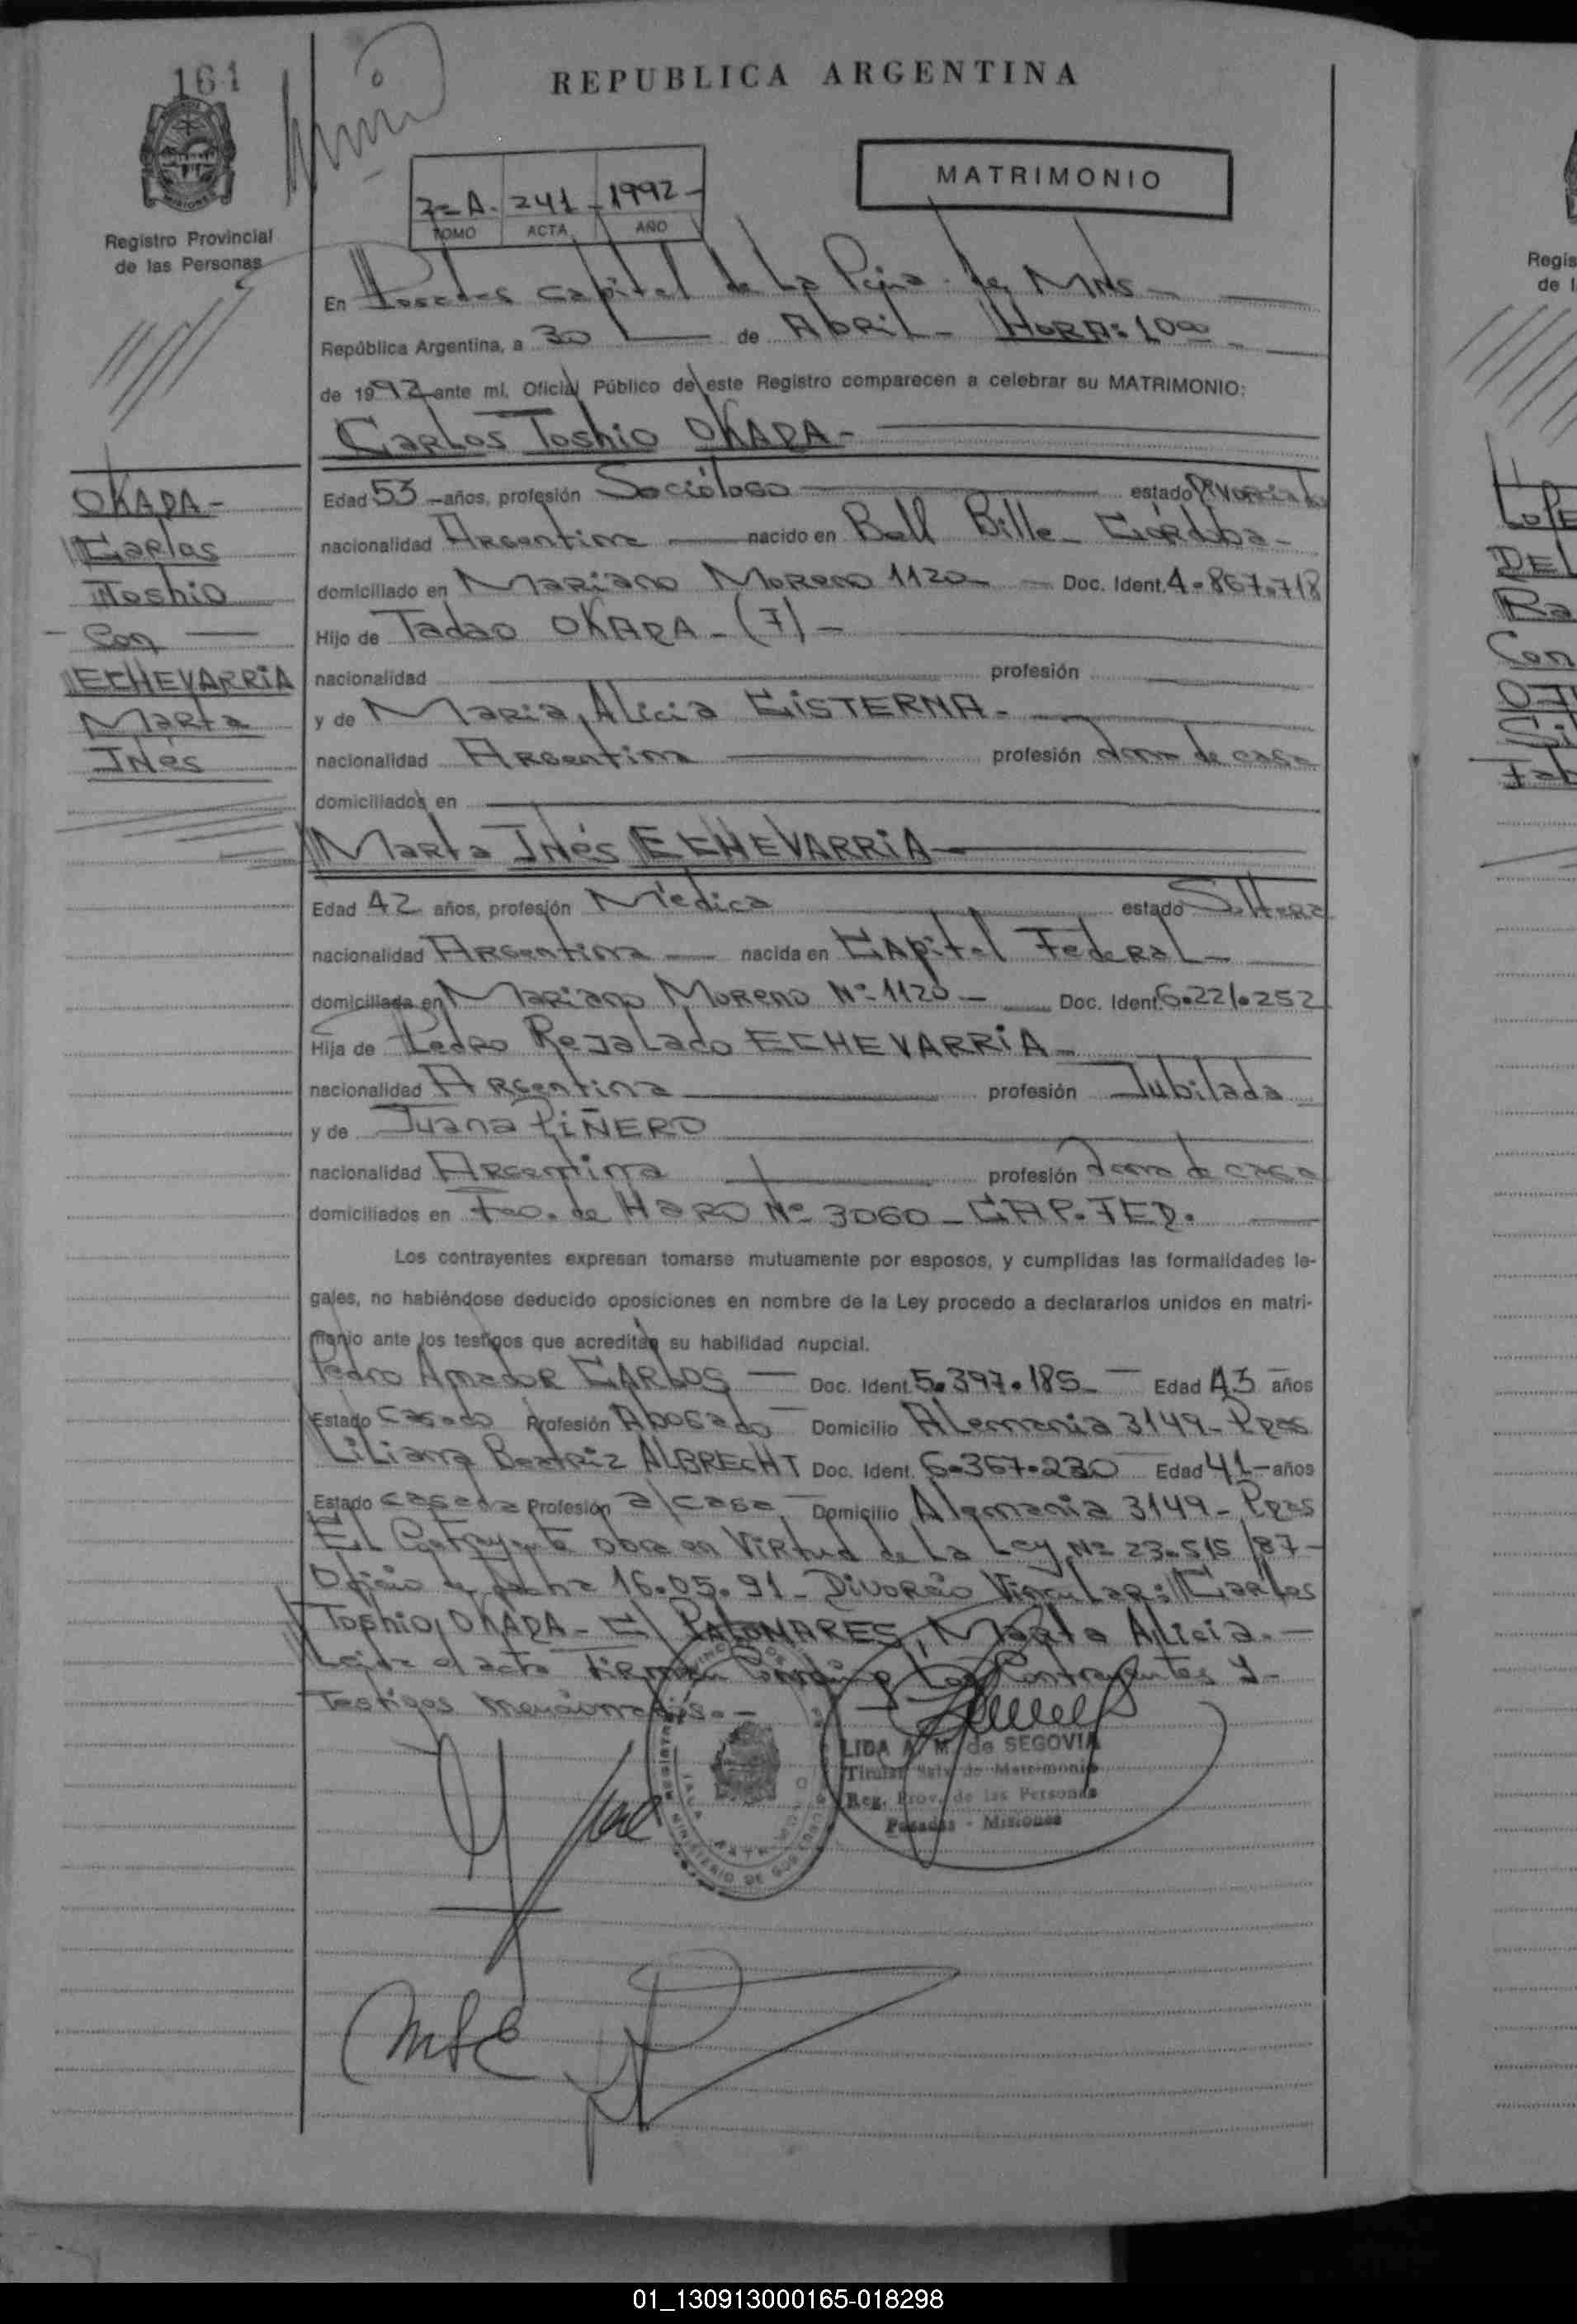 161
REPUBLICA ARGENTINA
MATRIMONIO
Registro Provincial
de las Personas
241 - 1992 -
TOMO ACTA AÑO
En Posadas Capital de La Pcia. de Mns -
República Argentina, a 30 de Abril - HORA: 10
de 1992 ante mí, Oficial Público de este Registro comparecen a celebrar su MATRIMONIO:
Carlos Toshio OKADA -
OKADA -
Carlos
Toshio
Con
ECHEVARRIA
Marta
Inés
Edad 53 años, profesión Sociólogo estado Divorciado
nacionalidad Argentina nacido en Bell Bille - Córdoba -
domiciliado en Mariano Moreno 1120 - Doc. Ident. 4.867.718
Hijo de Tadao OKADA - (7) -
nacionalidad profesión
y de Maria Alicia CISTERNA -
nacionalidad Argentina profesión ama de casa
domiciliados en
Marta Inés ECHEVARRIA -
Edad 42 años, profesión Médica estado Soltera
nacionalidad Argentina nacida en Capital Federal -
domiciliada en Mariano Moreno Nº 1120 - Doc. Ident. 6.221.252
Hija de Pedro Regalado ECHEVARRIA -
nacionalidad Argentina profesión Jubilada
y de Juana PIÑERO
nacionalidad Argentina profesión ama de casa
domiciliados en Fco. de Haro Nº 3060 - CAP. FED.
Los contrayentes expresan tomarse mutuamente por esposos, y cumplidas las formalidades le-
gales, no habiéndose deducido oposiciones en nombre de la Ley procedo a declararlos unidos en matri-
monio ante los testigos que acreditan su habilidad nupcial.
Pedro Amador CARLOS - Doc. Ident. 5.397.185 - Edad 43 años
Estado Casado Profesión Abogado Domicilio Alemania 3149 - Pdas
Liliana Beatriz ALBRECHT Doc. Ident. 6.367.230 Edad 41 - años
Estado casada Profesión a/casa Domicilio Alemania 3149 - Pdas
El Contrayente obra en Virtud de La Ley Nº 23.515/87 -
Oficio de fecha 16.05.91 - Divorcio Vincular: Carlos
Toshio OKADA - C/ PALOMARES, Marta Alicia. -
Leída el acta Firman Conmigo Los Contrayentes y
Testigos mencionados. -
LIDA A. M. de SEGOVIA
Titular Sala de Matrimonio
Reg. Prov. de las Personas
Posadas - Misiones
01_130913000165-018298